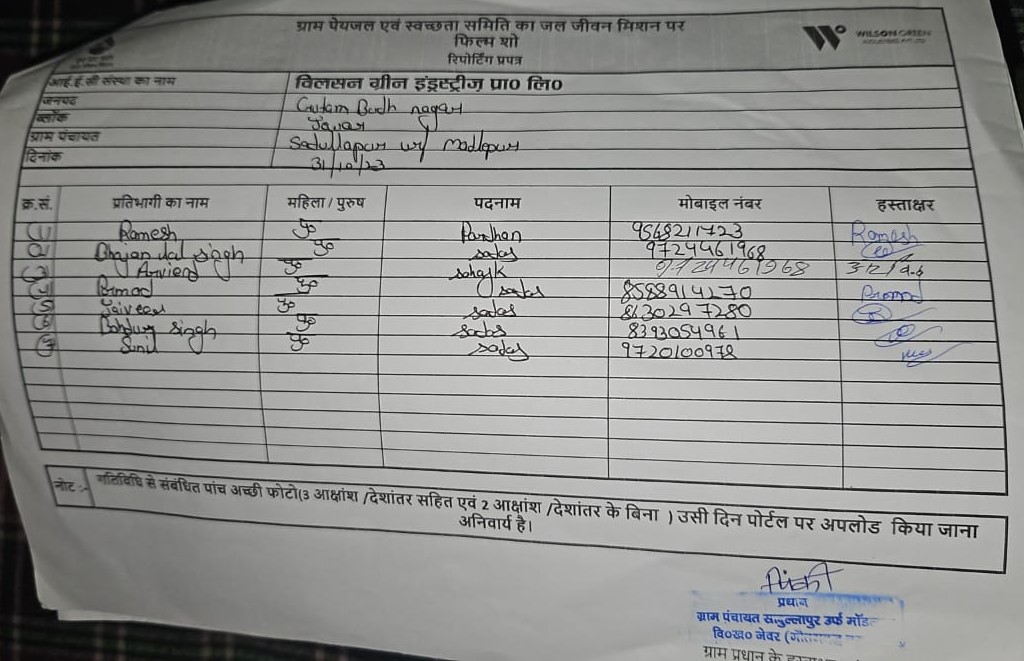 ग्राम पेयजल एवं स्वच्छता समिति का जल जीवन मिशन पर
फिल्म शो
रिपोर्टिंग प्रपत्र
WILSON GREEN
आई.ई.सी संस्था का नाम विलसन ग्रीन इंडस्ट्रीज़ प्रा० लि०
जनपद Gutam Budh nagar
ब्लॉक Jawar
ग्राम पंचायत Sadullapur urf Madlapur
दिनांक 31/10/23
क्र.सं. प्रतिभागी का नाम महिला / पुरुष पदनाम मोबाइल नंबर हस्ताक्षर
(1) Ramesh पु० Pardhan 9568211723 Ramesh
(2) Bhajan lal singh पु० sadas 9724461968
(3) Arviend पु० sahayk 9724461968
(4) Pramod पु० sadas 8588914270 Promod
(5) Jaiveer पु० sadas 8630297280
(6) Bahdur singh पु० sadas 8393054961
(7) Sunil पु० sadas 9720100978
नोट :- गतिविधि से संबंधित पांच अच्छी फोटो(3 आक्षांश /देशांतर सहित एवं 2 आक्षांश /देशांतर के बिना ) उसी दिन पोर्टल पर अपलोड किया जाना
अनिवार्य है।
पिंकी
प्रधान
ग्राम पंचायत सादुल्लापुर उर्फ
वि०ख० जेवर
ग्राम प्रधान के